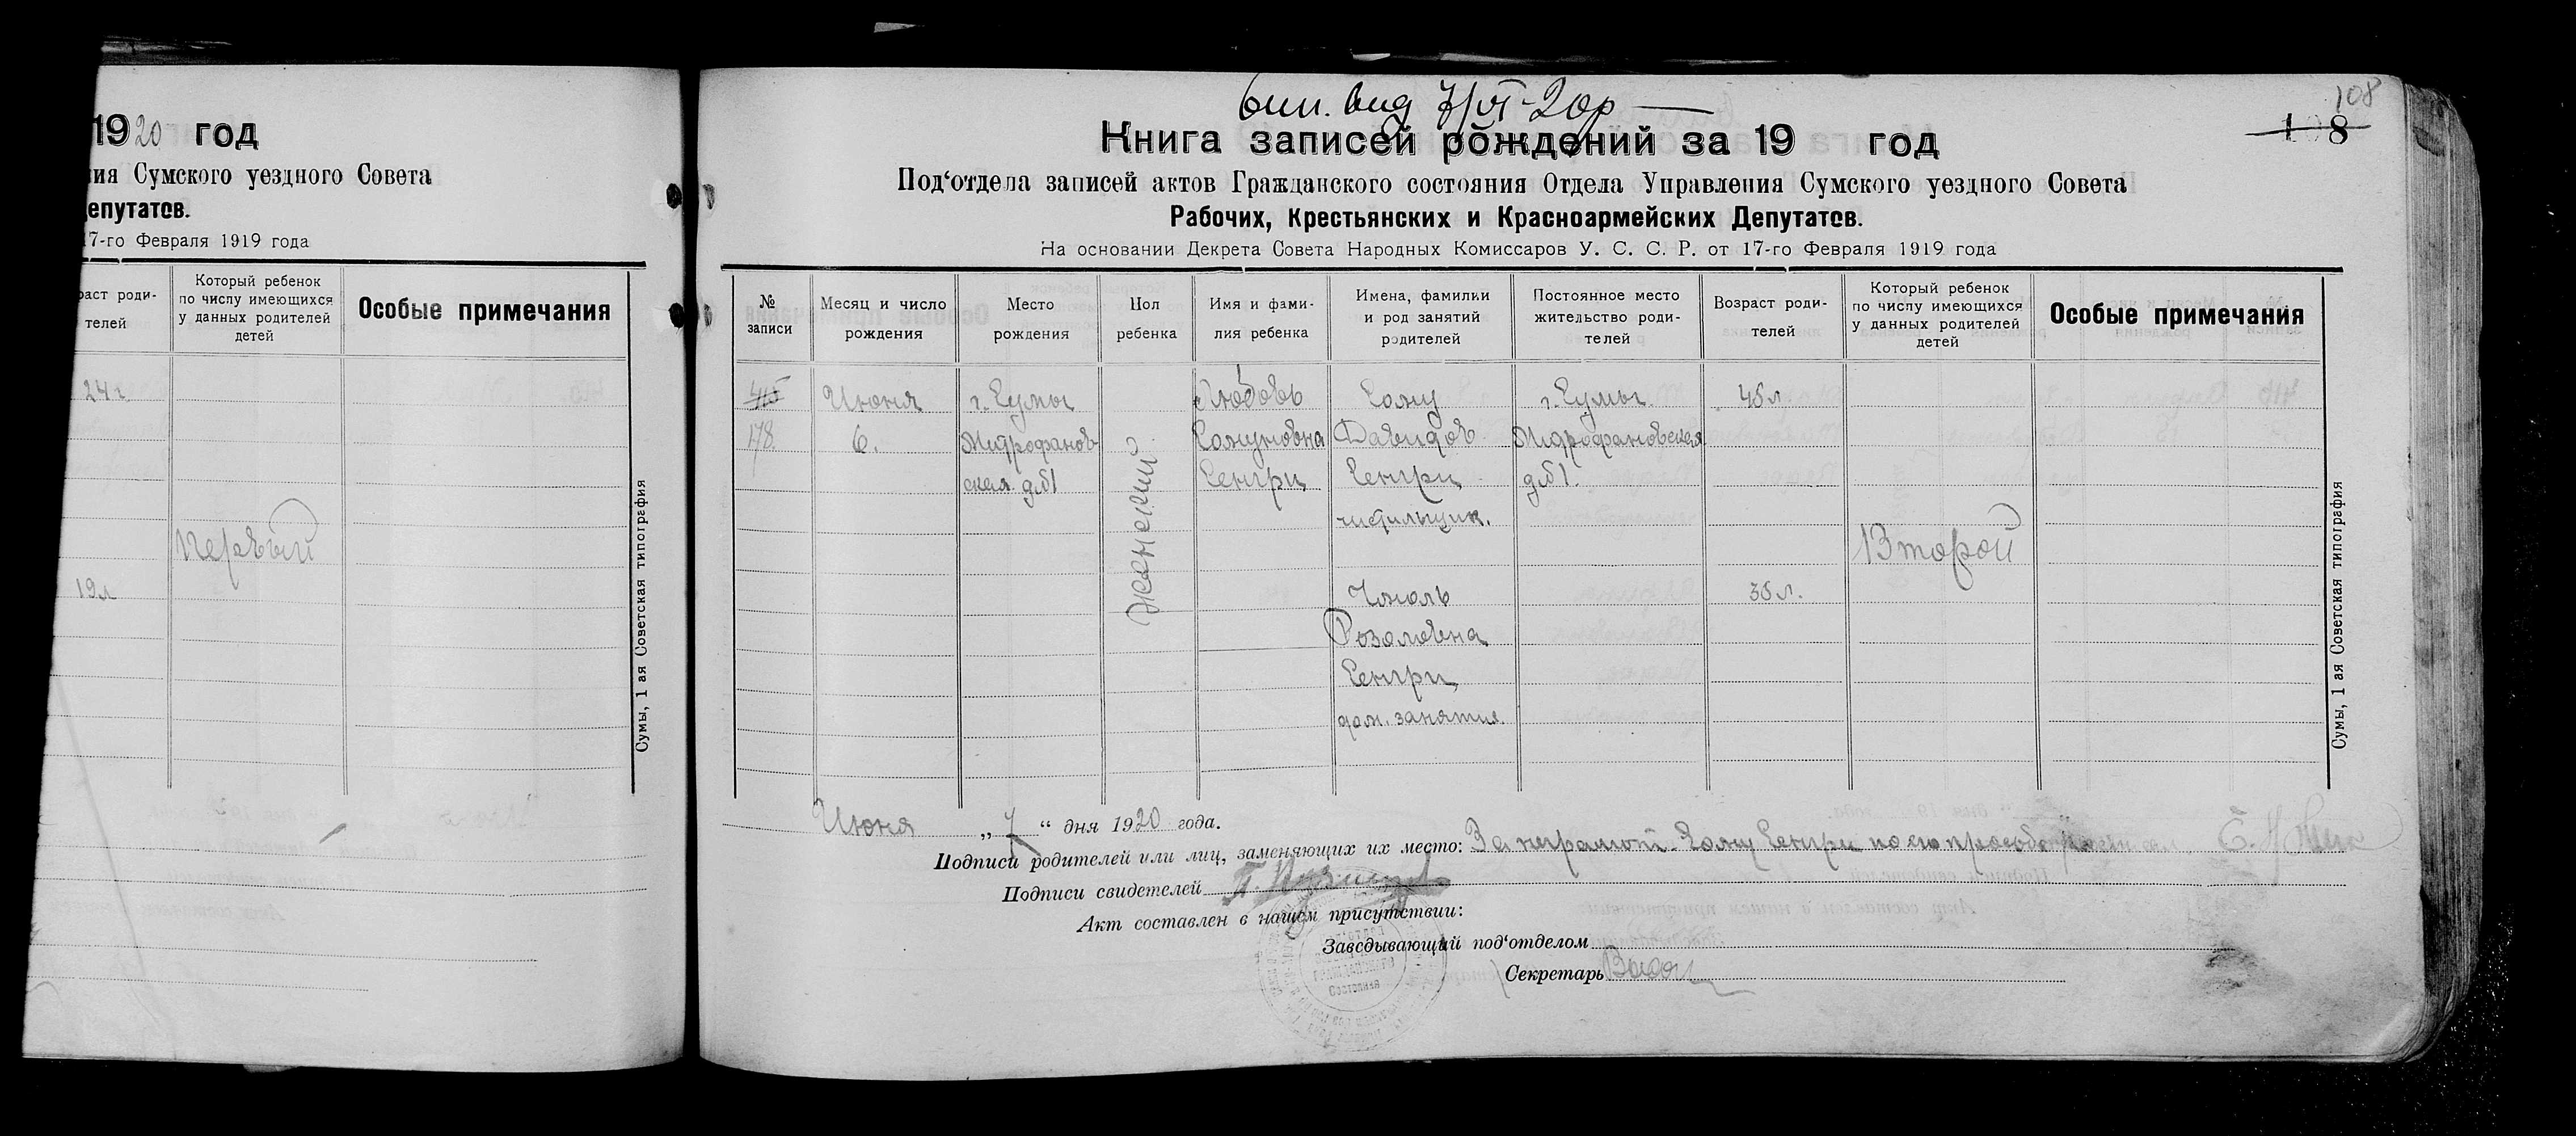 1920 год
ия Сумского уездного Совета
епутатов.
17-го Февраля 1919 года
раст роди-
телей
Который ребенок
по числу имеющихся
у данных родителей
детей
Особые примечания
24 г.
Первый
19 л
Сумы, 1 ая Советская типография
вып. вид 7/VI-20р
108
Книга записей рождений за 19 год
108
Под‘отдела записей актов Гражданского состояния Отдела Управления Сумского уездного Совета
Рабочих, Крестьянских и Красноармейских Депутатов.
На основании Декрета Совета Народных Комиссаров У. С. С. Р. от 17-го Февраля 1919 года
№
записи
Месяц и число
рождения
Место
рождения
Пол
ребенка
Имя и фами-
лия ребенка
Имена, фамилии
и род занятий
родителей
Постоянное место
жительство роди-
телей
Возраст роди-
телей
Который ребенок
по числу имеющихся
у данных родителей
детей
Особые примечания
415
178.
Июня
6.
г. Сумы
Митрофанов-
ская д. 51
женский
Любовь
Сенгри
Давидов
Сенгри
чистильщик.
Розаловна
Сенгри
дом. занятия.
г. Сумы
Митрофановская
д. 51.
45 л.
35 л.
Второй
Сумы, 1 ая Советская типография
Июня „7“ дня 1920 года.
Подписи родителей или лиц, заменяющих их место: За неграмот. Сенгри по его просьбе
Подписи свидетелей
Акт составлен в нашем присутствии:
Заведывающий под‘отделом
Секретарь